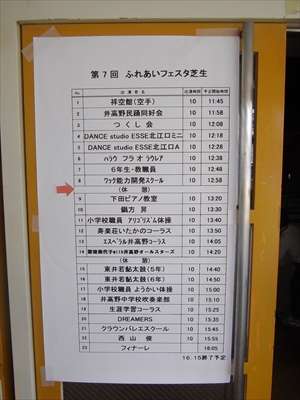 第7回 ふれあいフェスタ芝生
No. 出演者名 出演時間 予定開始時間
1 祥空館(空手) 10 11:45
2 井高野民踊同好会 10 11:58
3 つくし会 10 12:08
4 DANCE studio ESSE北江口ミニ 10 12:18
5 DANCE studio ESSE北江口A 10 12:28
6 ハラウ フラ オ ラウレア 10 12:38
7 6年生・教職員 10 12:48
8 ワック能力開発スクール 10 12:58
(休憩)
9 下田ピアノ教室 10 13:20
10 鍋方 昇 10 13:30
11 小学校職員 アリゴリズム体操 10 13:40
12 寿楽荘いたかのコーラス 10 13:50
13 エスペラル井高野コーラス 10 14:05
14 with井高野オールスターズ 20 14:20
(休憩)
15 東井若鮎太鼓(5年) 10 14:40
16 東井若鮎太鼓(6年) 10 14:50
17 小学校職員 ようかい体操 10 15:00
18 井高野中学校吹奏楽部 10 15:10
19 生涯学習コーラス 10 15:25
20 DREAMERS 10 15:35
21 クラウンバレエスクール 10 15:45
22 西山 俊 10 15:55
23 フィナーレ 16:05
16:15終了予定